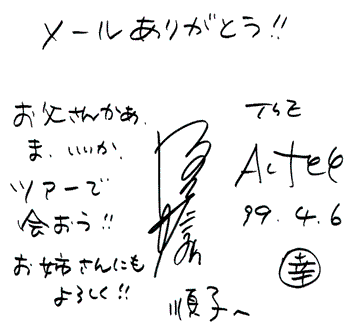 メールありがとう!!
お父さんかぁ、
ま、いいか、
ツアーで
会おう!!
お姉さんにも
よろしく!!
順子へ
THE
ALFEE
99.4.6
幸